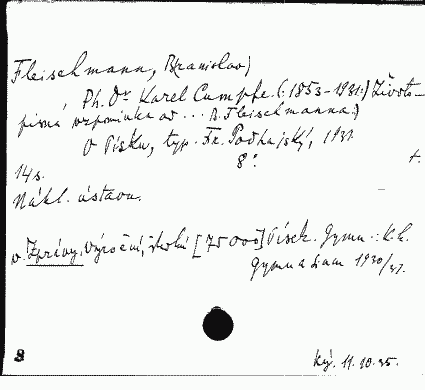 Fleischmann, B(ranislav)
Ph. Dr Karel Cumpfe. (: 1853-1931:) Životo-
pisná vzpomínka od ... B. Fleischmanna.)
V Písku, typ. Fr. Podhajský, 1931.
8°. t.
14 s.
Nákl. ústavu.
v. Zprávy, výroční, školní [75000] Písek. Gymn.: k.k.
Gymnasium 1930/31.
8
11.10.35.